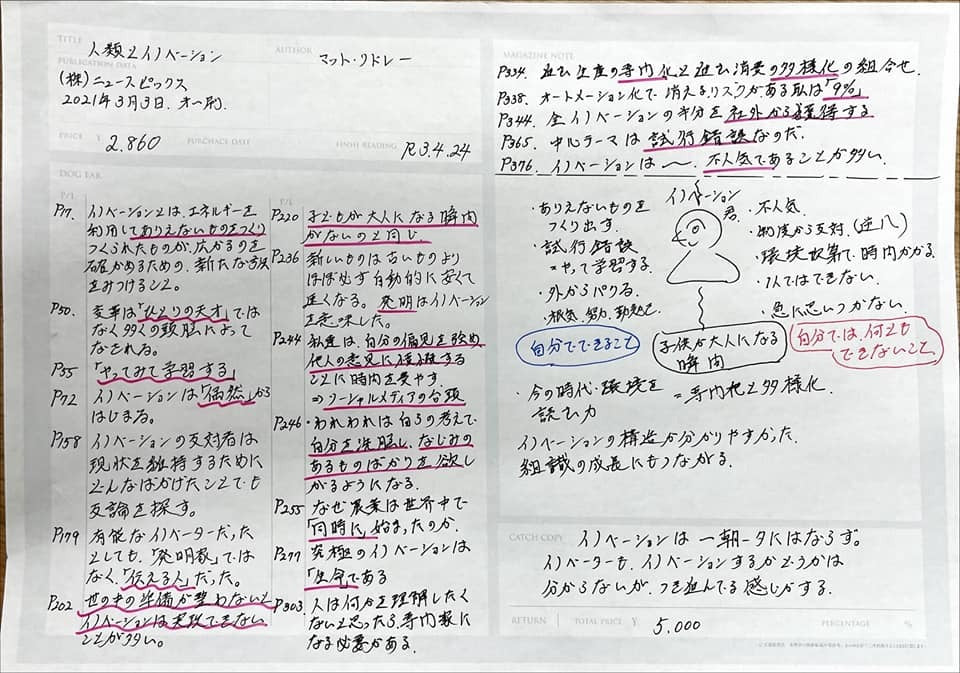 TITLE
人類とイノベーション
AUTHOR
マット・リドレー
PUBLICATION DATA
(株)ニューズピックス
2021年3月3日. オ一刷.
PRICE ¥ 2.860
PURCHACE DATE
FINISH READING R3.4.24
DOG EAR
P/L
P17. イノベーションとは、エネルギーを
利用してありえないものをつくり
つくられたものが、広がるのを
確かめるための、新たな方法
をみつけること。
P50. 変革は「ひとりの天才」では
なく多くの頭脳によって
なされる。
P55 「やってみて学習する」
P72 イノベーションは「偶然」から
はじまる。
P158 イノベーションの反対者は
現状を維持するために
どんなばかげたことでも
反論を探す。
P179 有能なイノベーターだった
としても、「発明家」では
なく、「伝える人」だった。
P202 世の中の準備が整わないと
イノベーションは実現できない
ことが多い。
P/L
P220 子どもが大人になる瞬間
がないのと同じ
P236 新しいものは古いものより
ほぼ必ず自動的に安くて
速くなる。発明はイノベーション
を意味した。
P244 私達は、自分の偏見を強め
他人の意見に
ことに時間を費やす.
⇒ソーシャルメディアの台頭
P246 ・われわれは自らの考えで
自分を洗脳し、なじみの
あるものばかりを欲し
がるようになる.
P255 なぜ農業は世界中で
「同時に」始まったのか.
P277 究極のイノベーションは
「生命」である
P303. 人は何かを理解したく
ないと思ったら、専門家に
なる必要がある.
MAGAZINE NOTE
P334. 進む生産の専門化と進む消費の多様化の組合せ.
P338. オートメーション化で消えるリスクがある職は「9%」
P344. 全イノベーションの半分を社外から獲得する
P365. 中心テーマは試行錯誤なのだ.
P376. イノベーションは〜. 不人気であることが多い.
イノベーション君
・ありえないものを
つくり出す.
・試行錯誤
=やって学習する.
・外からパクる.
・根気、努力、勤勉さ
自分でできること
・不人気
・制度から反対.(逆八)
・環境次第で時間かかる.
・1人ではできない.
・急に思いつかない.
自分では、何とも
できないこと
子供が大人になる
瞬間
・今の時代・環境を
読む力
=専門化と多様化
イノベーションの構造が分かりやすかった.
組織の成長にもつながる.
CATCH COPY
イノベーションは一朝一夕にはならず。
イノベーターも、イノベーションするかどうかは
分からないが、つき進んでる感じがする.
RETURN
TOTAL PRICE ¥ 5.000
PERCENTAGE %